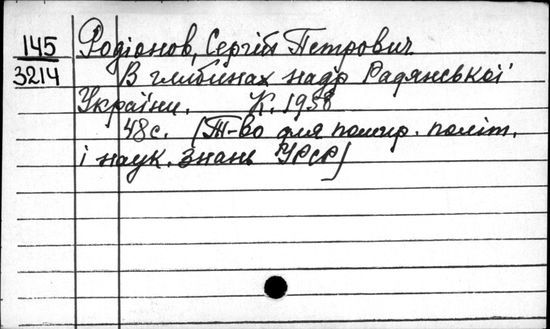 145 Родіонов, Сергій Петрович
3214 В глибинах надр Радянської
України. К. 1958
48с. (Т-во для пошир. політ.
і наук. знань УРСР)